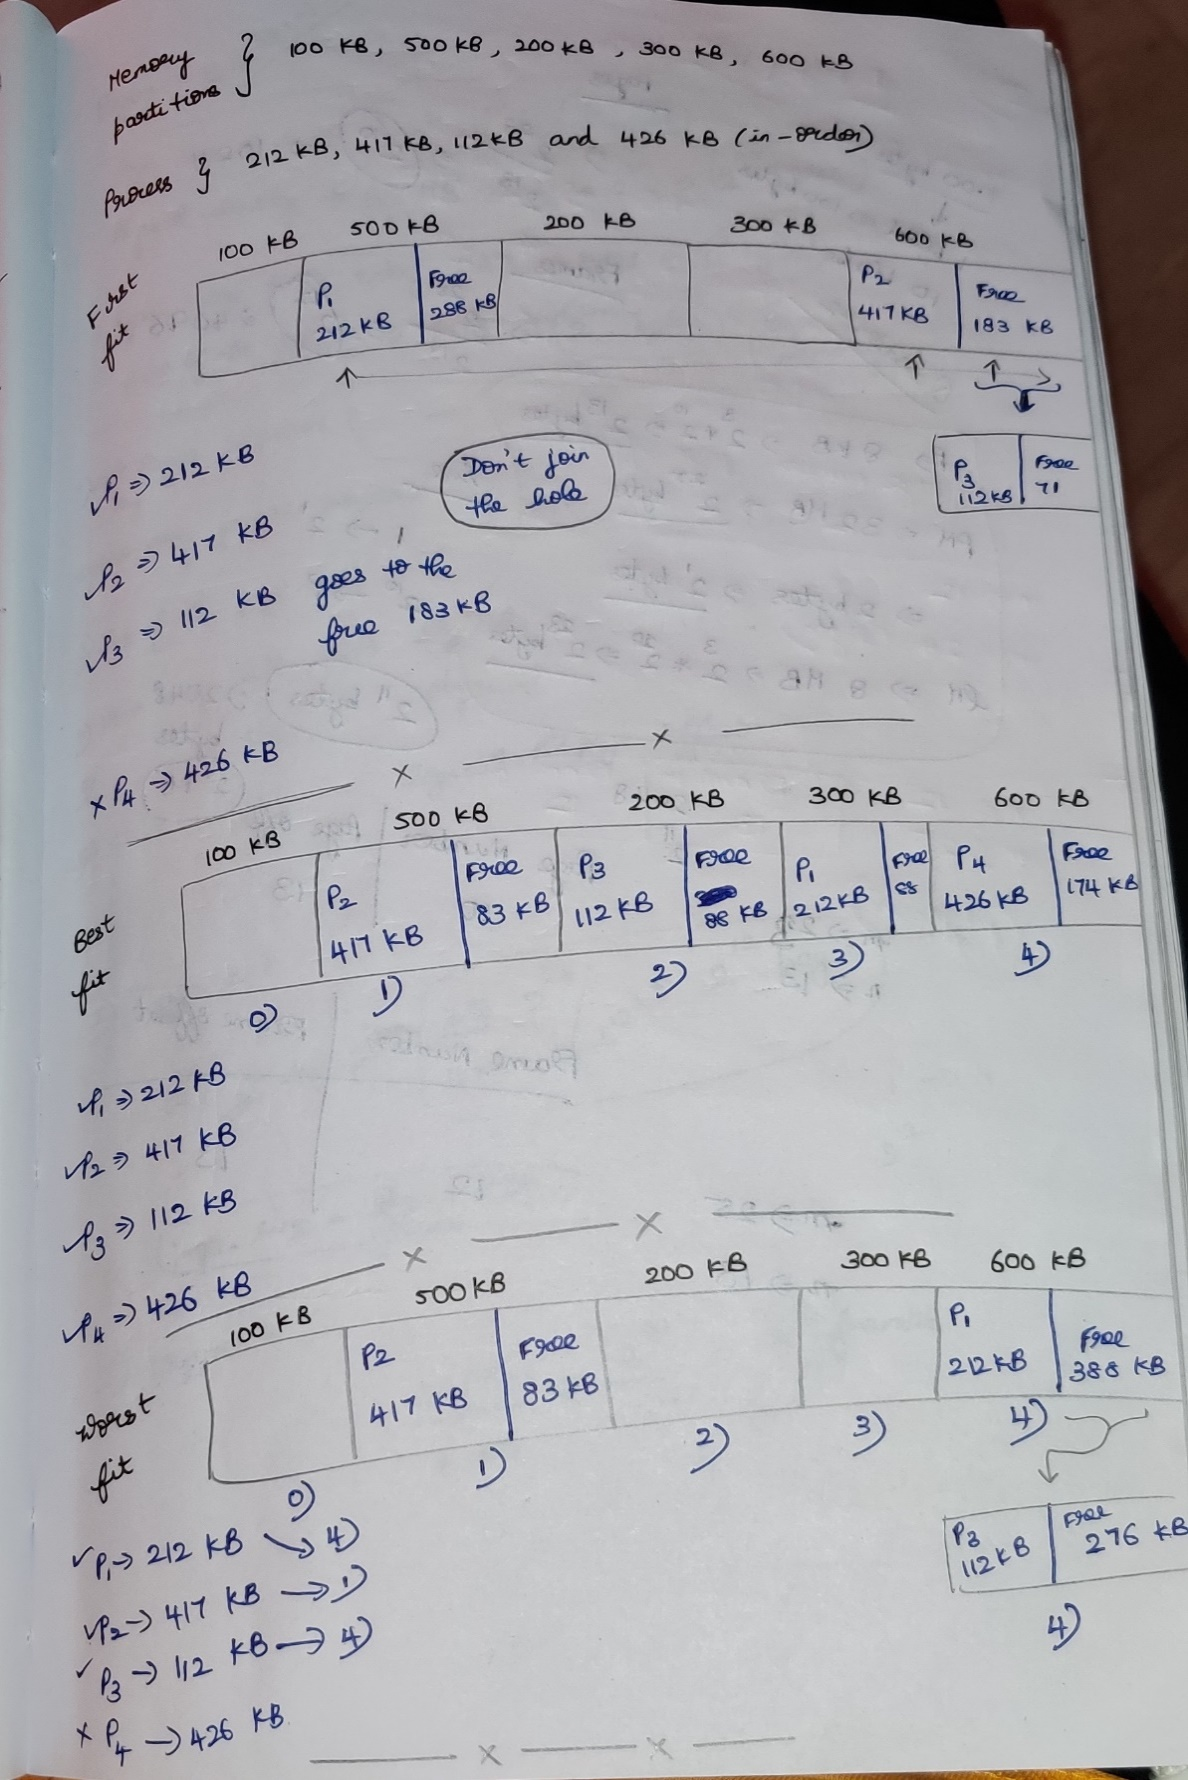 Memory partitions } 100 KB, 500 KB, 200 KB, 300 KB, 600 KB
Process } 212 KB, 417 KB, 112 KB and 426 KB (in-order)
First fit
100 KB 500 KB 200 KB 300 KB 600 KB
P1 212 KB Free 288 KB P2 417 KB Free 183 KB
P3 112 KB Free 71
✓P1 ⇒ 212 KB
Don't join the hole
✓P2 ⇒ 417 KB
✓P3 ⇒ 112 KB goes to the free 183 KB
x P4 ⇒ 426 KB
x x
Best fit
100 KB 500 KB 200 KB 300 KB 600 KB
P2 417 KB Free 83 KB P3 112 KB Free 88 KB P1 212 KB Free 88 P4 426 KB Free 174 KB
0) 1) 2) 3) 4)
✓P1 ⇒ 212 KB
✓P2 ⇒ 417 KB
✓P3 ⇒ 112 KB
✓P4 ⇒ 426 KB
x x
Worst fit
100 KB 500 KB 200 KB 300 KB 600 KB
P2 417 KB Free 83 KB P1 212 KB Free 388 KB
0) 1) 2) 3) 4)
P3 112 KB Free 276 KB
4)
✓P1 → 212 KB → 4)
✓P2 → 417 KB → 1)
✓P3 → 112 KB → 4)
x P4 → 426 KB
x x